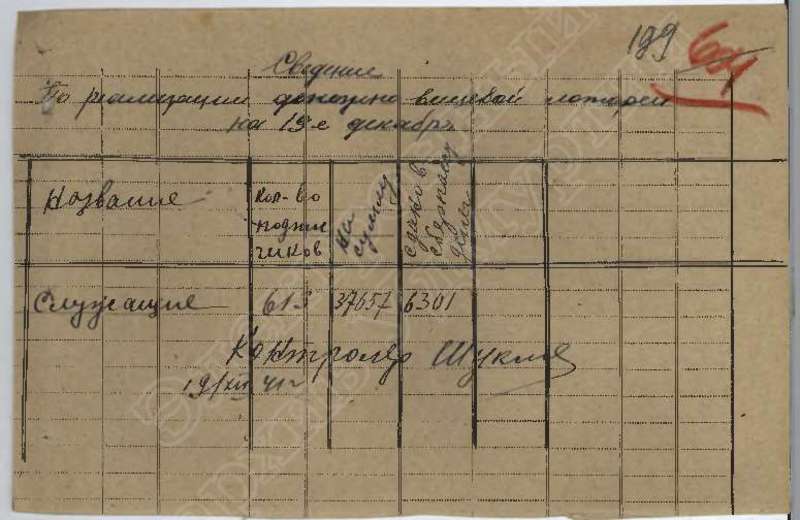 199
604
Сведение
По реализации денежно вещевой лотереи
на 19-е декабря
Название
Кол-во подпис чиков
на сумму
сдано в сберкассу денег
Служащие 613 37657 6301
Контролер
19/XII 41 г